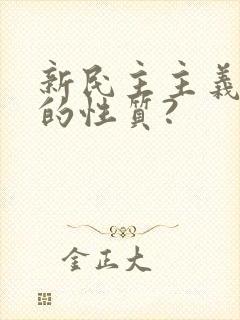 新民主主義
的性質？
金正大